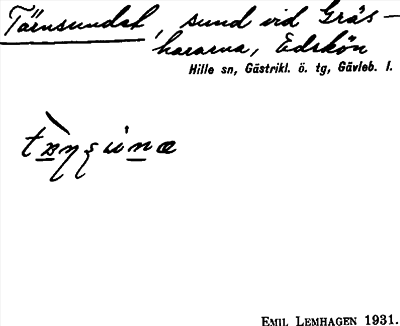 Tärnsundet, sund vid Gräs-
hararna, Edskön
Hille sn, Gästrikl. ö. tg, Gävleb. l.
EMIL LEMHAGEN 1931.